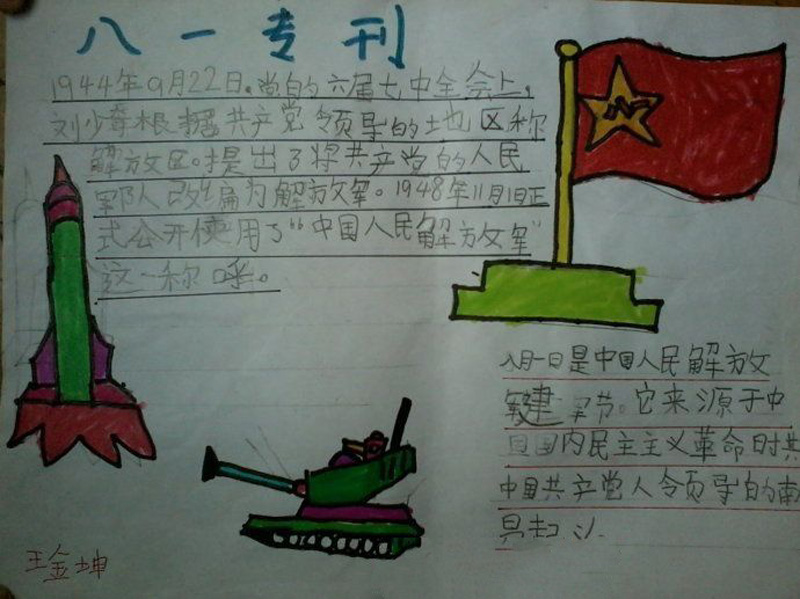 八一专刊
1944年9月22日。党的六届七中全会上,
刘少奇根据共产党领导的地区称
解放区。提出了将共产党的人民
军队改编为解放军。1948年11月1日正
式公开使用了“中国人民解放军”
这一称呼。
八一
八月一日是中国人民解放
军建军节。它来源于中
国国内民主主义革命时共
中国共产党人领导的南
昌起义
王金坤